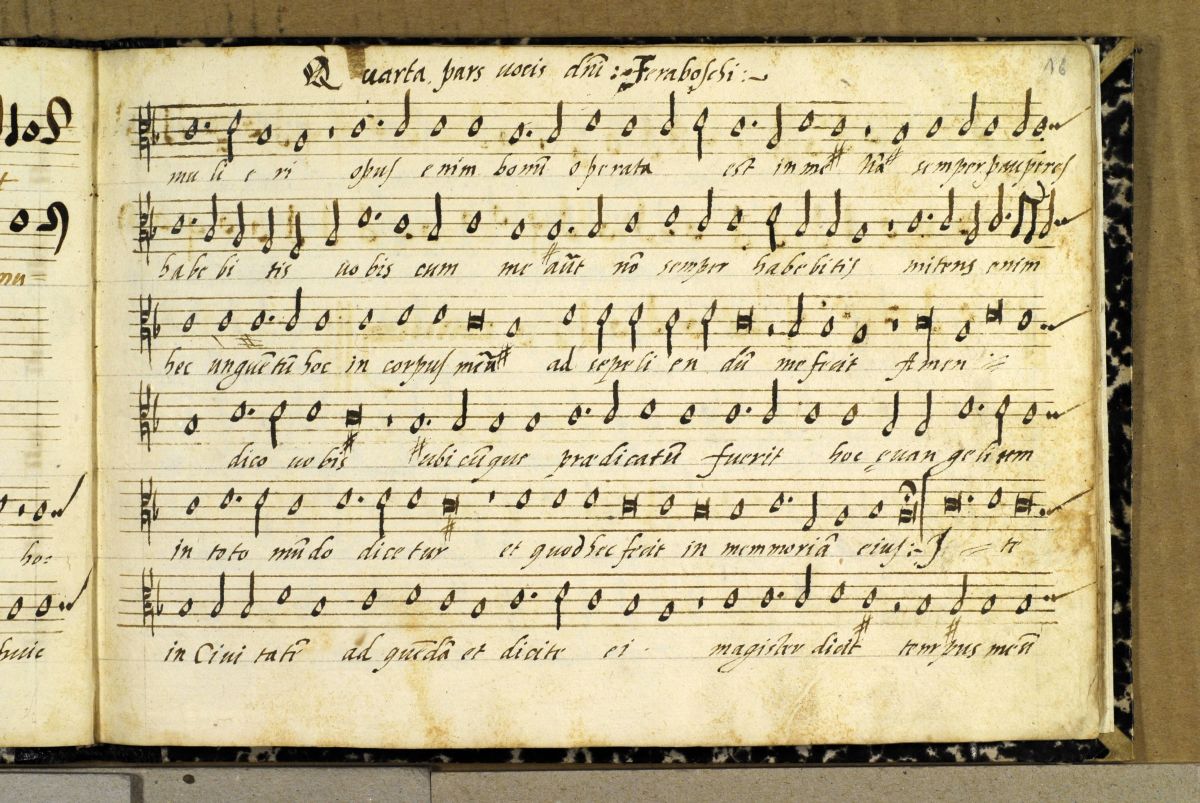 Quarta pars uocis dñi : Feraboschi :~
16
mu li e ri opus enim bonũ operata est in me Nã semper pauperes
habebi tis uobis cum me aũt nõ semper habebitis mitens enim
hec unguẽtũ hoc in corpus meũ ad sepeli en dũ me fecit Amen
dico uobis ubicũque prædicatũ fuerit hoc euan geliũm
in toto mũdo dicetur et quod hec fecit in memmoriã eius :~ J te
in Ciui tatẽ ad quẽdã et dicite ei magister dicit tempus meũ
hoc
huic